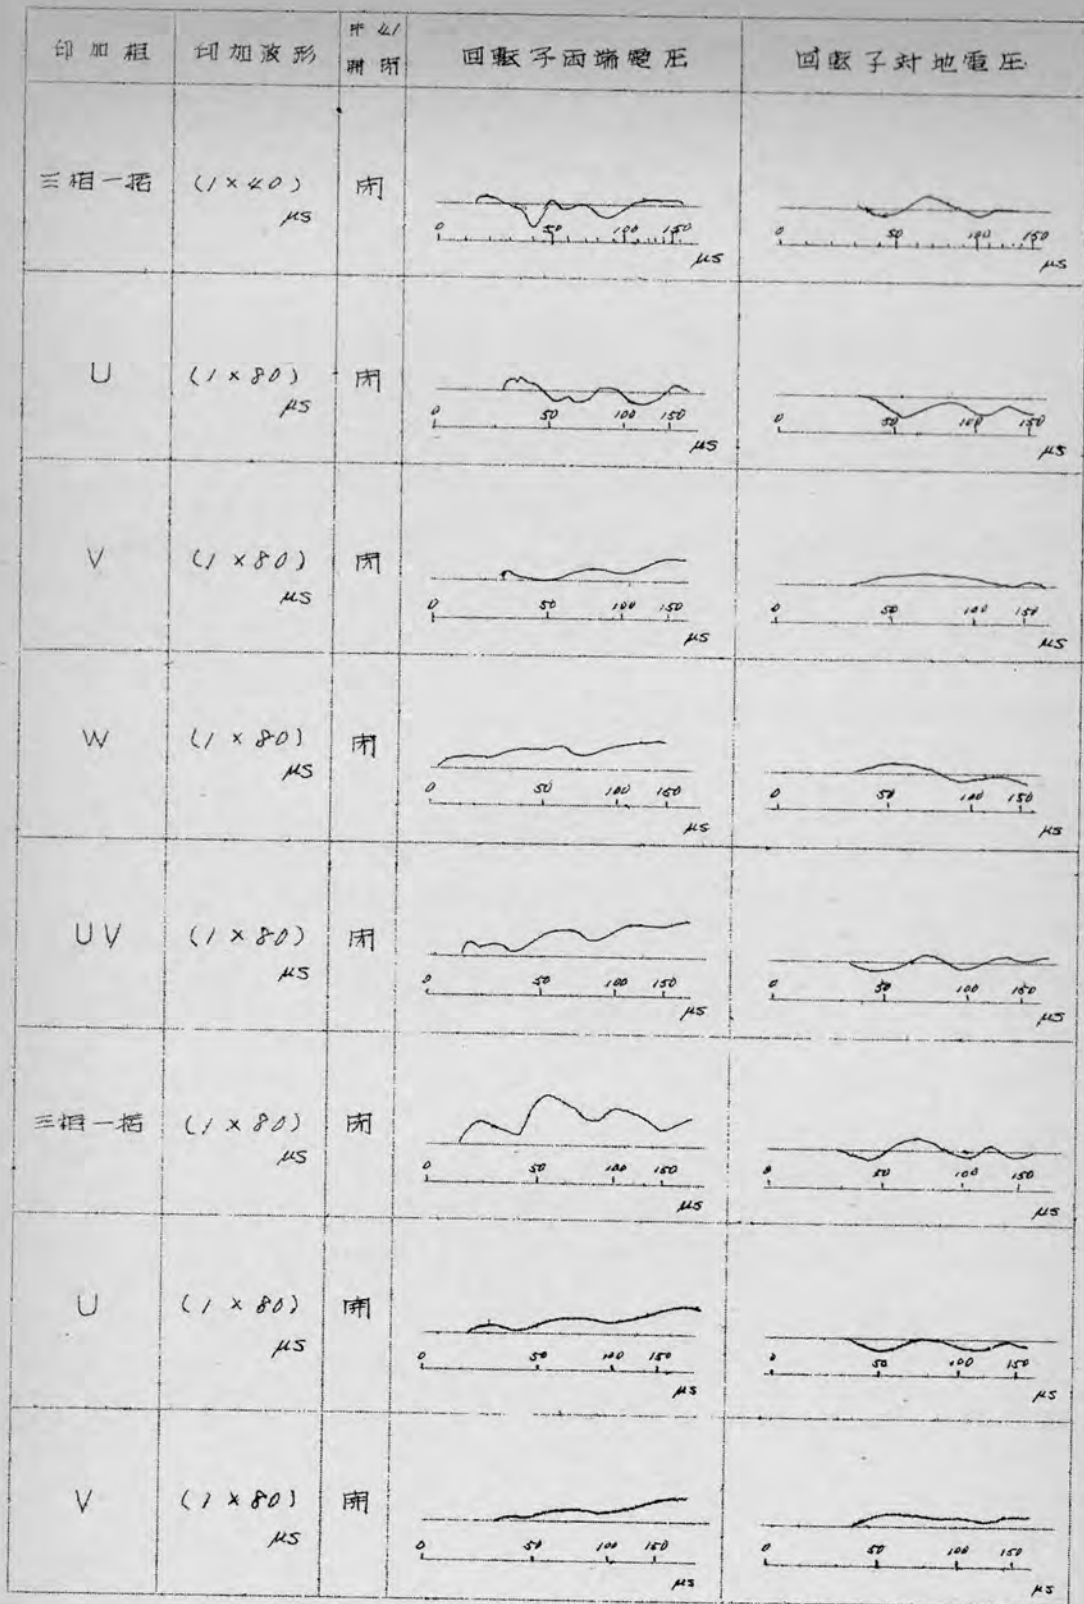 印加相 印加波形 開閉 回転子両端電圧 回転子対地電圧
三相一括 (1×40) μs 閉
0 50 100 150 μs
0 50 100 150 μs
U (1×80) μs 閉
0 50 100 150 μs
0 50 100 150 μs
V (1×80) μs 閉
0 50 100 150 μs
0 50 100 150 μs
W (1×80) μs 閉
0 50 100 150 μs
0 50 100 150 μs
UV (1×80) μs 閉
0 50 100 150 μs
0 50 100 150 μs
三相一括 (1×80) μs 閉
0 50 100 150 μs
0 50 100 150 μs
U (1×80) μs 開
0 50 100 150 μs
0 50 100 150 μs
V (1×80) μs 開
0 50 100 150 μs
0 50 100 150 μs